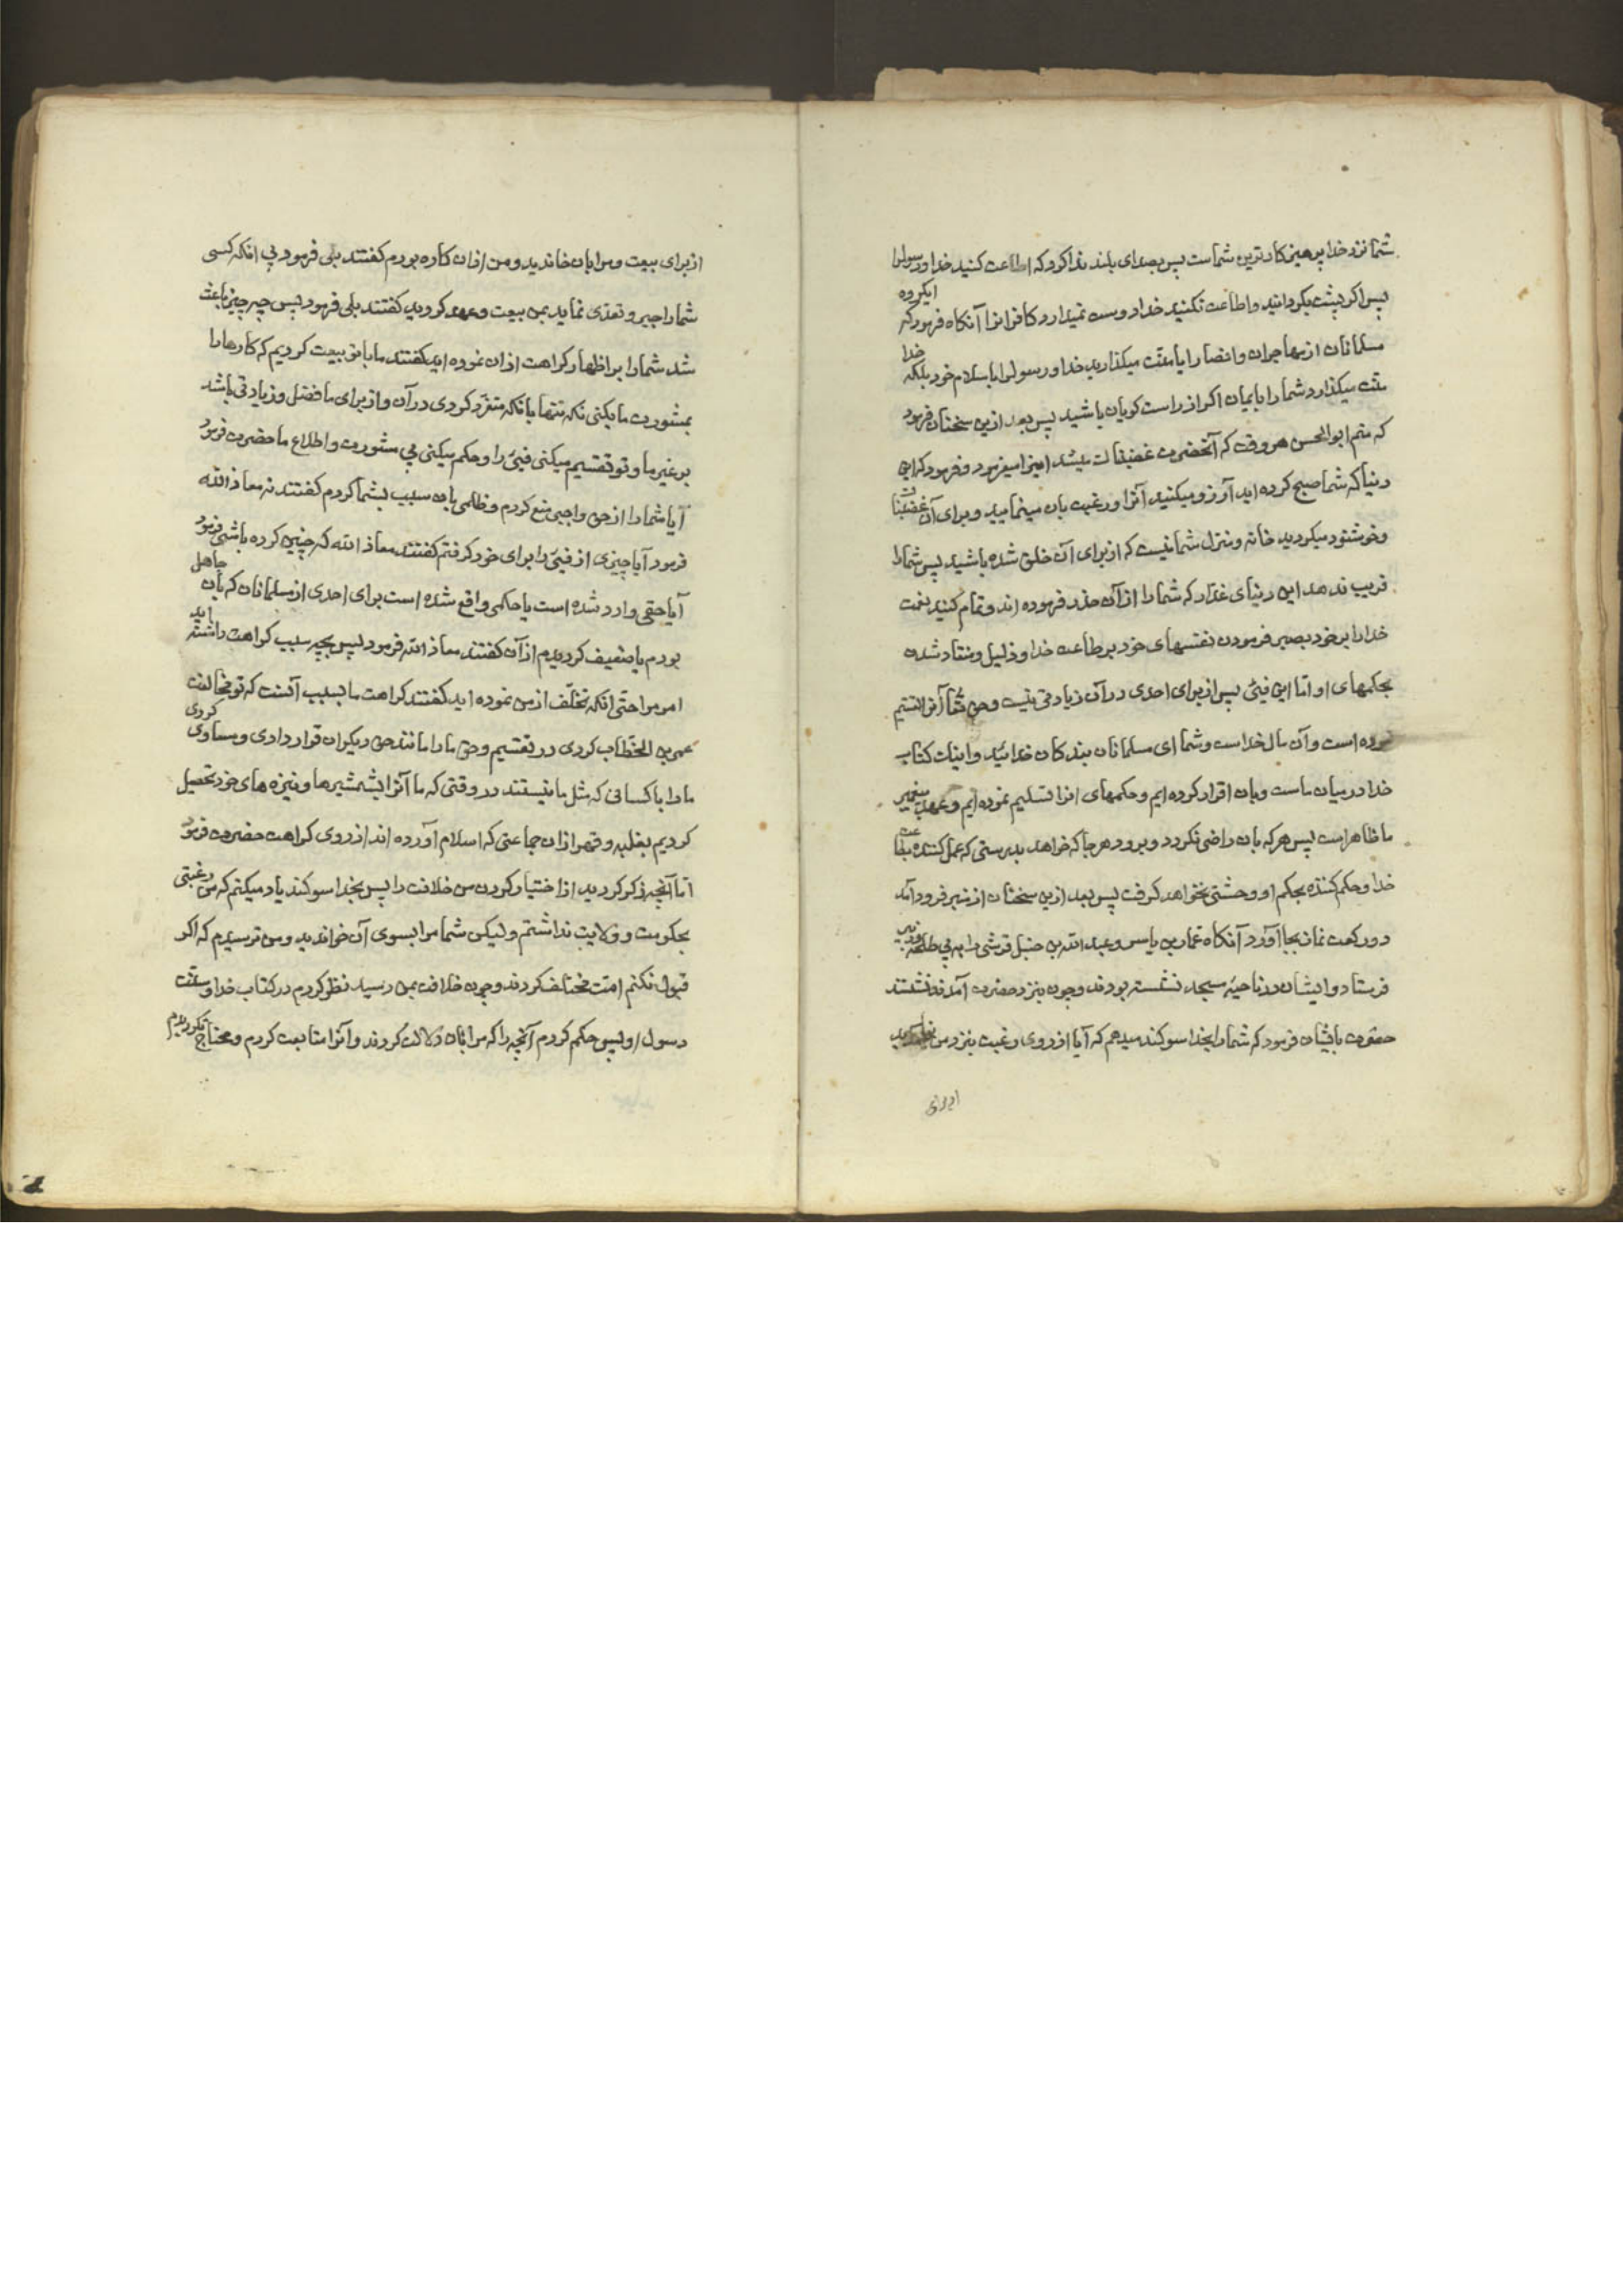 شما نزد خدا پرهیزکارترین شماست پس بصدای بلند ندا کرد که اطاعت کنید خدا و رسولرا
پس اکر پشت بکردانید و اطاعت نکنید خدا دوست نمیدارد کافرانرا آنکاه فرمود که ایکروه
مسلمانان از مهاجران و انصار ایا منّت میکذارید خدا و رسولرا باسلام خود بلکه خدا
منّت میکذارد شما را بایمان اکر از راست کویان باشید پس بعد ازین سخنان فرمود
که منم ابوالحسن هر وقت که آنحضرت غضبناک میشد اینرا میفرمود و فرمود که این
دنیا که شما صبح کرده اید آرزو میکنید آنرا و رغبت بان مینمایید و برای آن غضبناک
و خوشنود میکردید خانه و منزل شما نیست که از برای آن خلق شده باشید پس شما را
فریب ندهد این دنیای غدّار که شما را از آن حذر فرموده اند و تمام کنید نعمت
خدا را بر خود بصبر فرمودن نفسهای خود بر طاعت خدا و ذلیل و منقاد شدن
بحکمهای او امّا این فیئ پس از برای احدی در آن زیادتی نیست و حق تعّا آنرا قسمت
نموده است و آن مال خداست و شما ای مسلمانان بندکان خدائید و اینک کتاب
خدا در میان ماست و بان اقرار کرده ایم و حکمهای انرا تسلیم نموده ایم و عهد پیغمبر
ما ظاهر است پس هر که بان راضی نکردد و برود هر جا که خواهد بدرستی که عمل کننده بطاعت
خدا و حکم کننده بحکم او وحشتی نخواهد کرفت پس بعد ازین سخنان از منبر فرود آمد
دو رکعت نماز بجا آورد آنکاه عمار بن یاسر و عبد الله بن حنبل قرشی را به پی طلحه و زبیر
فرستاد و ایشان در ناحیهٔ مسجد نشسته بودند و چون بنزد حضرت آمدند نشستند
حضرت بایشان فرمود که شما را بخدا سوکند میدهم که آیا از روی رغبت بنزد من نیامدید
از برای
از برای بیعت و مرا بان خاندید و من ازان کاره بودم کفتند بلی فرمود بی انکه کسی
شما را جبر و تعدّی نماید بمن بیعت و عهد کردید کفتند بلی فرمود پس چه چیز باعث
شد شما را بر اظهار کراهت ازان نموده اید کفتند ما با تو بیعت کردیم که کارها را
بمشورت ما بکنی نکه تنها یا نکه متفرّد کردی در آن و از برای ما فضل و زیادتی باشد
بر غیر ما و تو تقسیم میکنی فیئ را و حکم میکنی بی مشورت و اطلاع ما حضرت فرمود
آیا شما را از حق واجبی منع کردم و ظلمی بان سبب بشما کردم کفتند نه معاذ الله
فرمود آیا چیزی از فیئ را برای خود کرفتم کفتند معاذ الله که چنین کرده باشی فرمود
آیا حقی وارد شده است یا حکمی واقع شده است برای احدی از مسلمانان که بآن جاهل
بودم یا ضعیف کردیدم از آن کفتند معاذ الله فرمود پس بچه سبب کراهت داشته اید
امر مرا حتّی انکه تخلّف از من نموده اید کفتند کراهت ما بسبب آنست که تو مخالفت
عمر بن الخطّاب کردی در تقسیم و حق ما را مانند حق دیکران قرار دادی و مساوی کردی
ما را با کسانی که مثل ما نیستند در وقتی که ما آنرا بشمشیرها و نیزه های خود تحصیل
کردیم بغلبه و قهر ازان جماعتی که اسلام آورده اند از روی کراهت حضرت فرمود
امّا آنچه ذکر کردید از اختیار کردن من خلافت را پس بخدا سوکند یاد میکنم که من رغبتی
بحکومت و ولایت نداشتم ولیکن شما مرا بسوی آن خواندید و من ترسیدم که اکر
قبول نکنم امت مختلف کردند و چون خلافت بمن رسید نظر کردم در کتاب خدا و سنّت
رسول او پس حکم کردم آنچه را که مرا بان دلالت کردند و آنرا متابعت کردم و محتاج نکردیدم